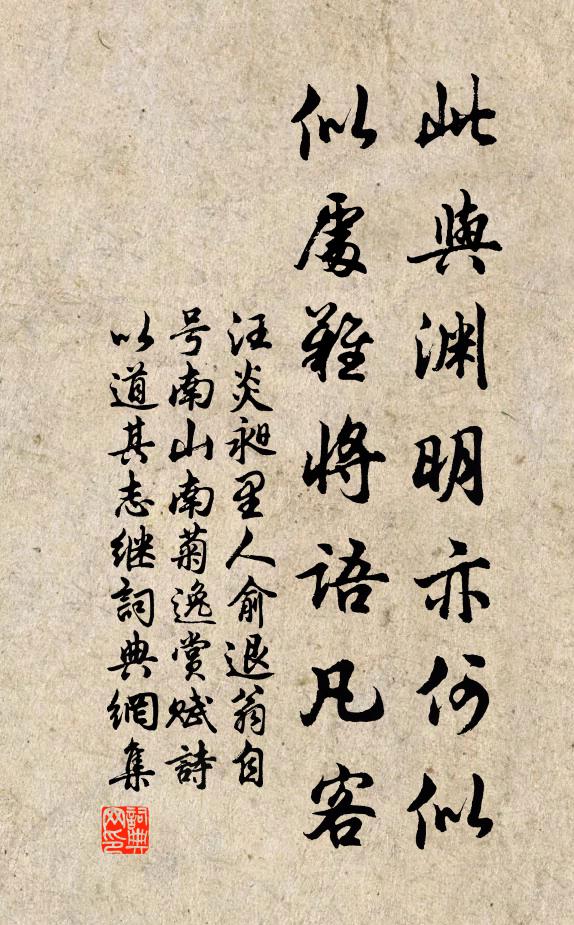 此與渊明亦何似
似處難将語凡客
汪炎昶里人俞退翁自
号南山南菊逸賞賦詩
以道其志继詞典網集
詞典网印